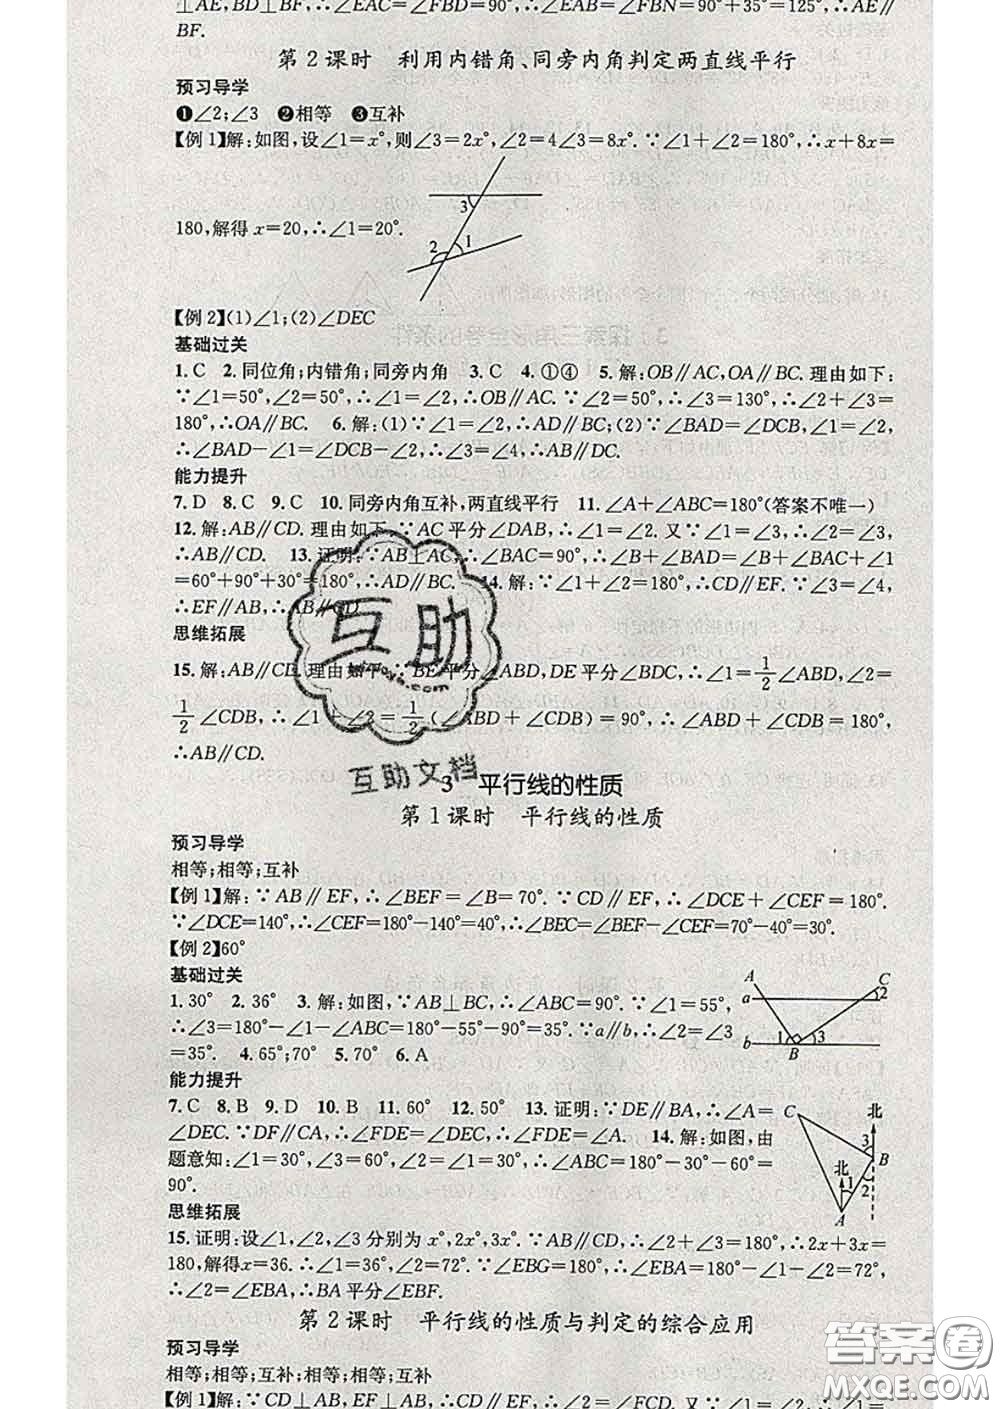 ⊥AE,BD⊥BF,∴∠EAC=∠FBD=90°,∴∠EAB=∠FBN=90°+35°=125°,∴AE∥
BF.
第2课时 利用内错角、同旁内角判定两直线平行
预习导学
❶∠2;∠3 ❷相等 ❸互补
【例1】解:如图,设∠1=x°,则∠3=2x°,∠2=4∠3=8x°.∵∠1+∠2=180°,∴x+8x=
180,解得x=20,∴∠1=20°.
3
2
1
【例2】(1)∠1;(2)∠DEC
基础过关
1.C 2.同位角;内错角;同旁内角 3.C 4.①④ 5.解:OB∥AC,OA∥BC.理由如下:
∵∠1=50°,∠2=50°,∴∠1=∠2,∴OB∥AC.∵∠2=50°,∴∠3=130°,∴∠2+∠3=
180°,∴OA∥BC. 6.解:(1)∵∠1=∠2,∴AD∥BC;(2)∵∠BAD=∠DCB,∠1=∠2,
∴∠BAD-∠1=∠DCB-∠2,∴∠3=∠4,∴AB∥DC.
能力提升
7.D 8.C 9.C 10.同旁内角互补,两直线平行 11.∠A+∠ABC=180°(答案不唯一)
12.解:AB∥CD.理由如下:∵AC平分∠DAB,∴∠1=∠2.又∵∠1=∠3,∴∠2=∠3,
∴AB∥CD. 13.证明:∵AB⊥AC,∴∠BAC=90°,∴∠B+∠BAD=∠B+∠BAC+∠1
=60°+90°+30°=180°,∴AD∥BC. 14.解:∵∠1+∠2=180°,∴CD∥EF.∵∠3=∠4,
∴EF∥AB,∴AB∥CD.
思维拓展
15.解:AB∥CD.理由如下:∵BE平分∠ABD,DE平分∠BDC,∴∠1=1/2∠ABD,∠2=
1/2∠CDB,∴∠1+∠2=1/2(∠ABD+∠CDB)=90°,∴∠ABD+∠CDB=180°,
∴AB∥CD.
互助
互助文档
3 平行线的性质
第1课时 平行线的性质
预习导学
相等;相等;互补
【例1】解:∵AB∥EF,∴∠BEF=∠B=70°.∵CD∥EF,∴∠DCE+∠CEF=180°.
∵∠DCE=140°,∴∠CEF=180°-140°=40°,∴∠BEC=∠BEF-∠CEF=70°-40°=30°.
【例2】60°
基础过关
1.30° 2.36° 3.解:如图,∵AB⊥BC,∴∠ABC=90°.∵∠1=55°,
∴∠3=180°-∠1-∠ABC=180°-55°-90°=35°.∵a∥b,∴∠2=∠3
=35°. 4.65°;70° 5.70° 6.A
A
C
a
2
b
1
3
B
能力提升
7.C 8.B 9.D 10.B 11.60° 12.50° 13.证明:∵DE∥BA,∴∠A=
∠DEC.∵DF∥CA,∴∠FDE=∠DEC,∴∠FDE=∠A. 14.解:如图,由
题意知:∠1=30°,∠3=60°,∴∠2=30°,∴∠ABC=180°-30°-60°=
90°.
C
北
3
B
北
1
2
A
思维拓展
15.证明:设∠1,∠2,∠3分别为x°,2x°,3x°.∵∠2+∠3=180°,∴2x+3x=
180,解得x=36.∴∠1=36°,∠2=72°.∵∠EBG=180°,∴∠EBA=180°-(∠1+∠2)=72°,
∴∠2=∠EBA,∴BA平分∠EBF.
第2课时 平行线的性质与判定的综合应用
预习导学
相等;相等;互补;相等;相等;互补
【例1】解:∵CD⊥AB,EF⊥AB,∴CD∥EF,∴∠2=∠FCD.∵∠1=∠2,∴∠1=
答案圈
MXQE.COM